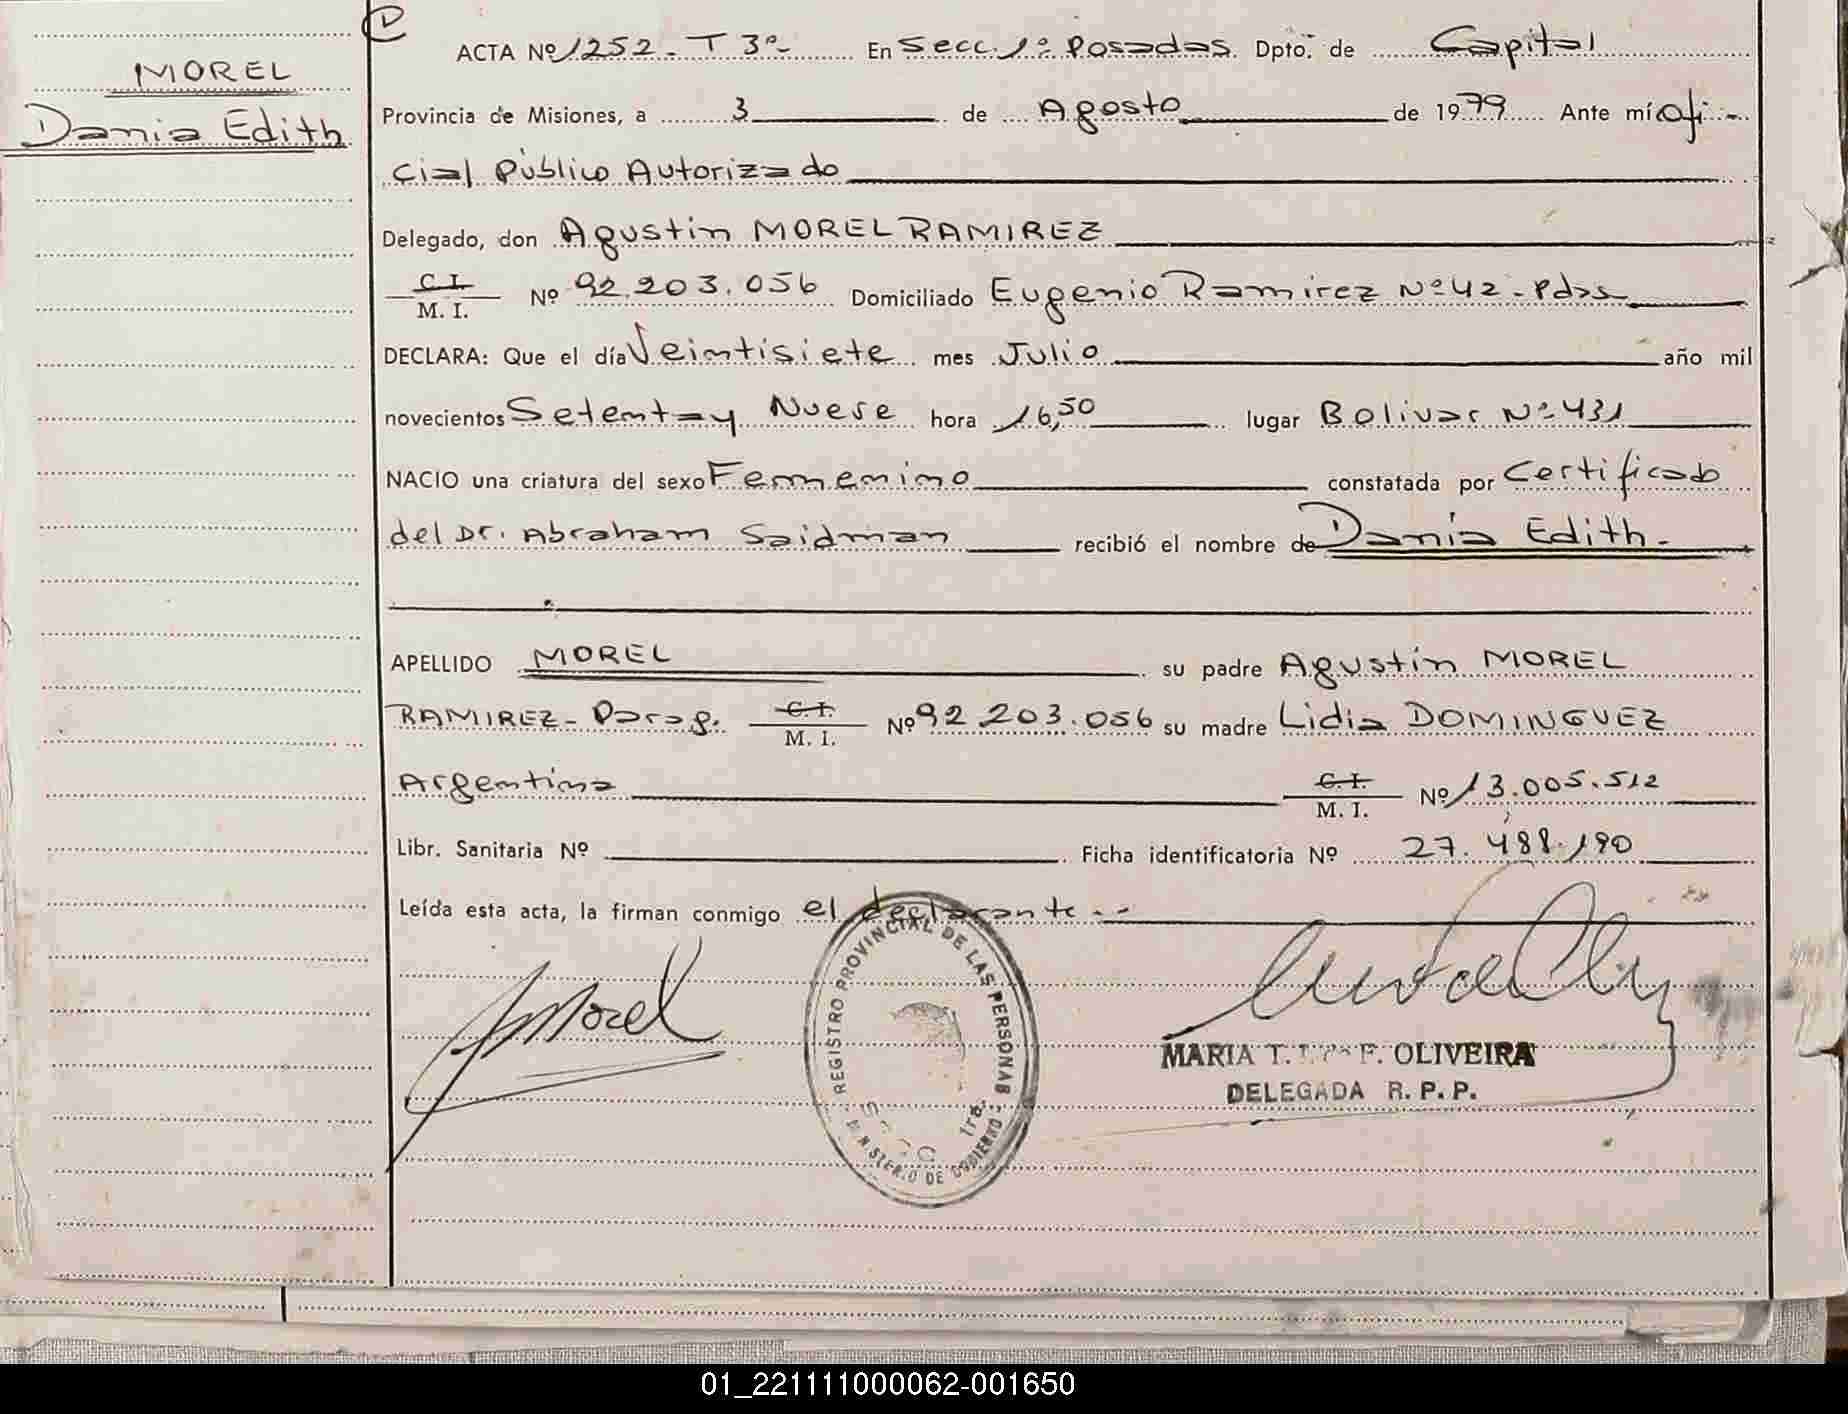 MOREL
Dania Edith
ACTA Nº 1252 - T 3º - En Secc. 1º Posadas. Dpto. de Capital
Provincia de Misiones, a 3 de Agosto de 1979 Ante mí ofi-
cial Público Autorizado
Delegado, don Agustin MOREL RAMIREZ
C. I. M. I. Nº 92.203.056 Domiciliado Eugenio Ramirez Nº 42 - Pdas
DECLARA: Que el día Veintisiete mes Julio año mil
novecientos Setenta y Nueve hora 16,50 lugar Bolivar Nº 431
NACIO una criatura del sexo Femenino constatada por Certificado
del Dr. Abraham Saidman recibió el nombre de Dania Edith.
APELLIDO MOREL su padre Agustin MOREL
RAMIREZ - Parag. C. I. M. I. Nº 92.203.056 su madre Lidia DOMINGUEZ
Argentina C. I. M. I. Nº 13.005.512
Libr. Sanitaria Nº Ficha identificatoria Nº 27.488.190
Leída esta acta, la firman conmigo el declarante.-
Morel
REGISTRO PROVINCIAL DE LAS PERSONAS
1ra.
MINISTERIO DE GOBIERNO
MARIA T. F. OLIVEIRA
DELEGADA R. P. P.
01_221111000062-001650